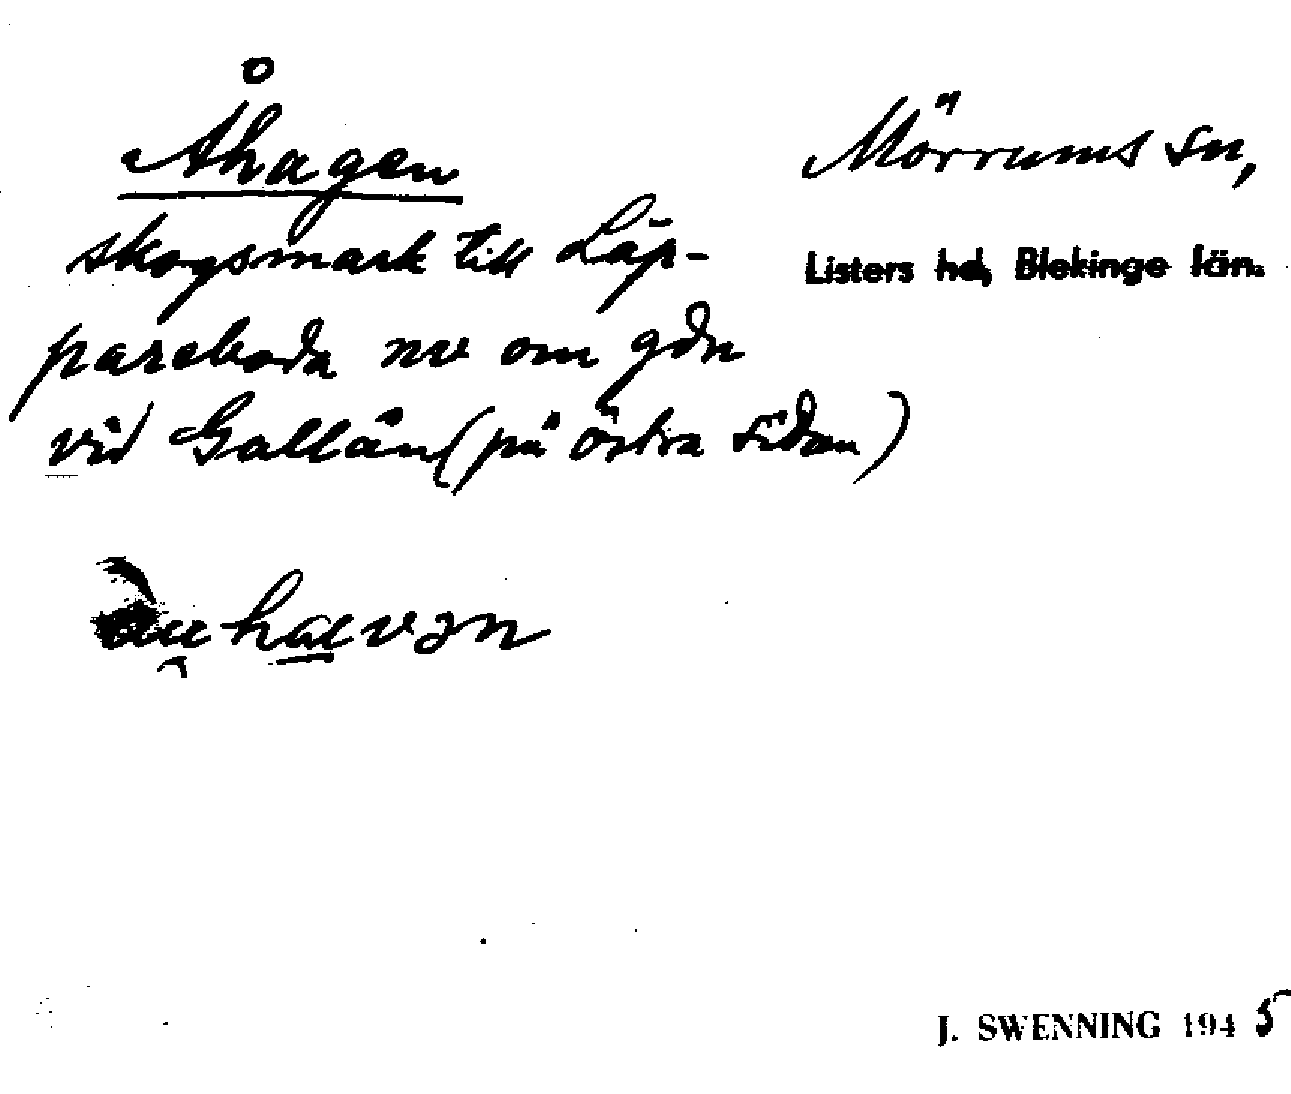 Åhagen
Mörrums sn,
skogsmark till Läp-
Listers hd, Blekinge län.
pareboda nv om gdn
vid Gallån (på östra sidan)
J. SWENNING 1945